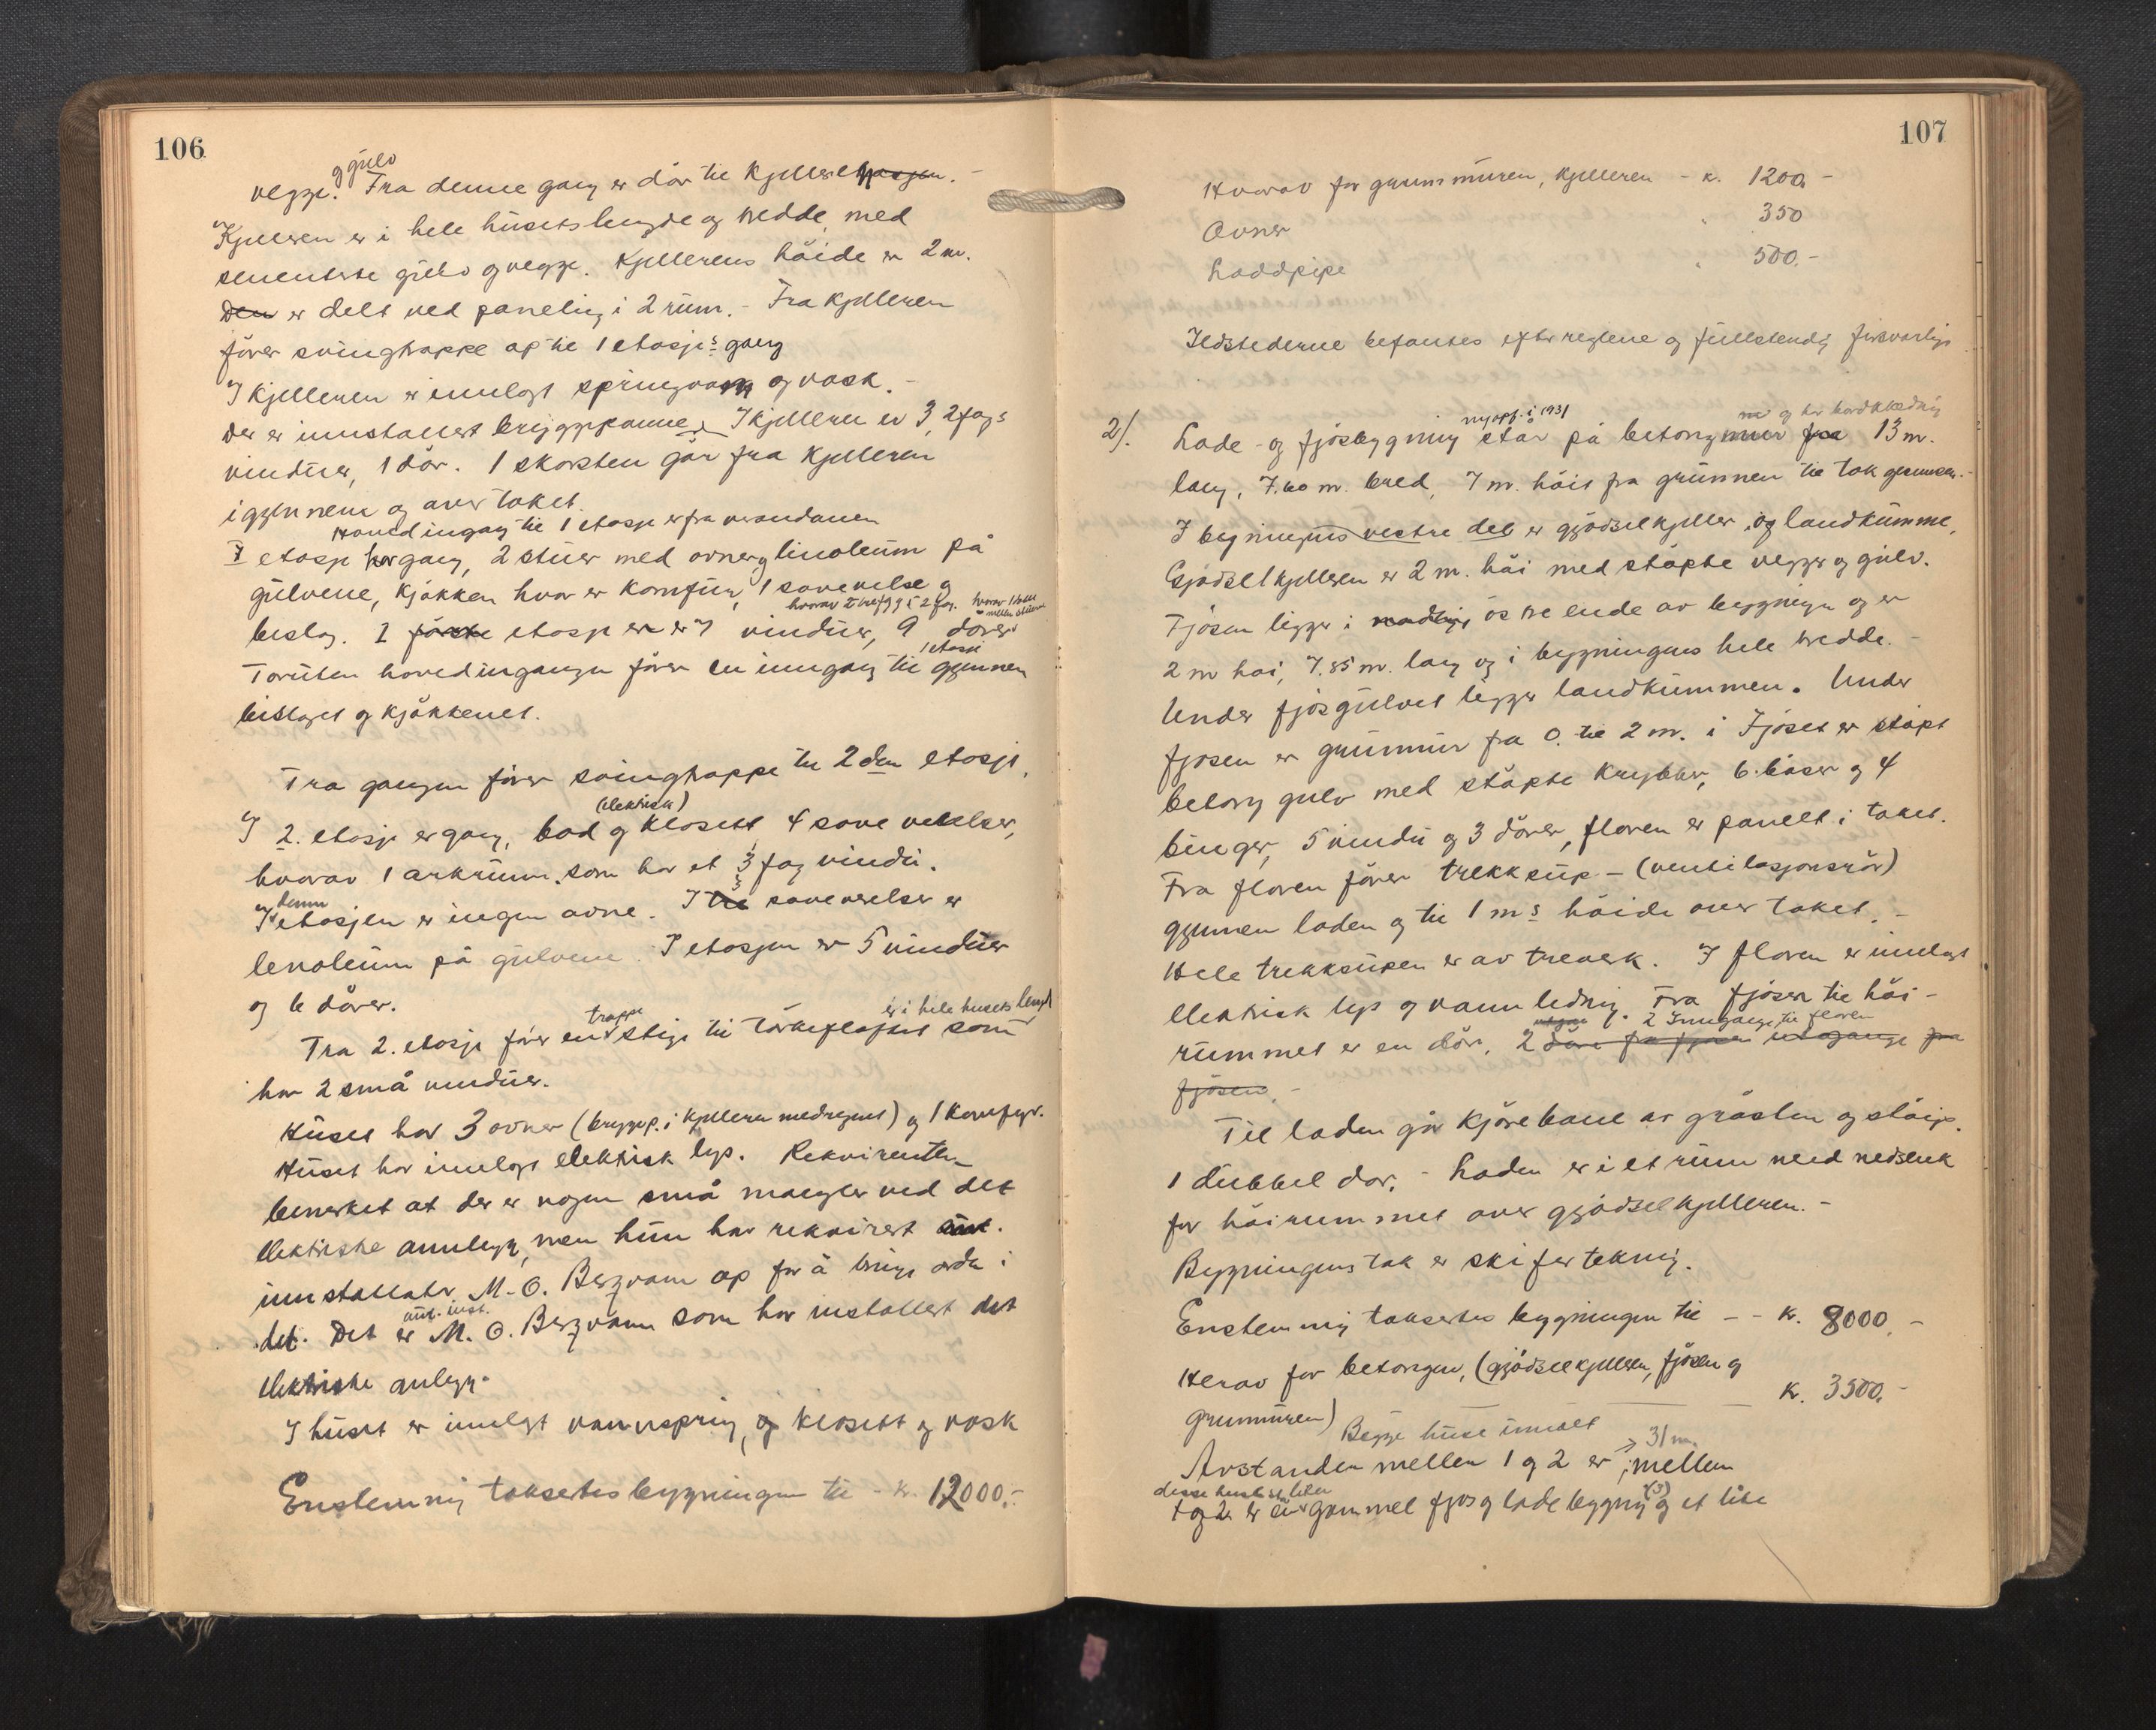 106
og gulv
vegge. Fra denne gang er dör til kjelleretasjen. -
Kjelleren er i hele husets lengde og bredde, med
sementerte gulv og vegge. Kjellerens höide er 2 m.
Den er delt ved paneling i 2 rum. - Fra kjelleren
förer svingtrappe op til 1 etasjes gang
I kjelleren er innlagt springvann og vask. -
Der er innstallert bryggpanne. I kjelleren er 3, 2 fags
vinduer, 1 dör. 1 skorsten går fra kjelleren
igjennem og over taket.
Hovedingang til 1 etasje er fra verandaen
I etasje har gang, 2 stuer med ovner og linoleum på
gulvene, kjökken hvor er komfur, 1 soveverelse og
beslag. I förste etasje er 7 vinduer, 9 dörer
Foruten hovedingangen förer en inngang til 1 etasje gjennem
bislaget og kjökkenet.
Fra gangen förer svingtrappe til 2den etasje.
(elektrisk)
I 2. etasje er gang, bad og klosett, 4 soveverelser,
hvorav 1 arkrum, som har et 3 fag vindu.
I denne etasjen er ingen ovne. I 3 soveverelser er
lenoleum på gulvene. I etasjen er 5 vinduer
og 6 dörer.
trappe er i hele husets lengde
Fra 2. etasje förer en stige til törkeloftet som
har 2 små vinduer.
Huset har 3 ovner (bryggep. i kjelleren medregnet) og 1 komfyr.
Huset har innlagt elektrisk lys. Rekvirenten
bemerket at der er nogen små mangler ved det
elektriske annlegg, men hun har rekvirert aut.
innstallatör M. O. Bergvam op for å bringe orden i
aut. inst.
det. Det er M. O. Bergvam som har installert det
elektriske anlegg.
I huset er innlagt vannspring, og klosett og vask
Enstemmig taksertes bygningen til - kr. 12000.-
107
Hvorav for grunnmuren, kjelleren - k. 1200 -
Ovner " 350
Loddpipe " 500.-
Ildstederne befantes efter reglene og fullstendig forsvarlige
nyopf. i 1931
m og har bordklædning
2/. Lade - og fjösbygning står på betongmur fra 13 m.
lang, 7.60 m. bred, 7 m. höit fra grunnen til tak gesimsen. -
I bygningens vestre del er gjödselkjeller og landkumme,
Gjödselkjelleren er 2 m. höi med stöpte vegger og gulv.
Fjösen ligger i östre ende av bygningen og er
2 m höi, 7.85 m. lang og i bygningens hele bredde. -
Under fjösgulvet ligger landkummen. Under
fjösen er grunnmur fra 0. til 2 m. i Fjöset er stöpt
betong gulv med stöpte krybber, 6 båser og 4
binger, 5 vindu og 3 dörer, floren er panelt i taket.
Fra floren förer trekksup - (ventilasjonsrör)
gjennem laden og til 1 m's höide over taket. -
Hele trekksupen er av treverk. I floren er innlagt
elektrisk lys og vannledning. Fra fjösen til höi-
2 Innganger til floren
rummet er en dör, 2 döre fra fjösen utgange fra
fjösen. -
Til laden går kjörebane av gråsten og stöip.
1 dubbel dör. - Laden er i et rum med nedsenk
for höirummet over gjödselkjelleren. -
Bygningens tak er skifertekning.
Enstemmig taksertes bygningen til - - kr. 8000. -
Herav for betongen, (gjödselkjelleren, fjösen og
grunnmuren) kr. 3500. -
Begge huse innmålt
Avstanden mellem 1 og 2 er 31 m. ; mellem
1 og 2 er en gammel fjös og lade bygning (3) og et lite